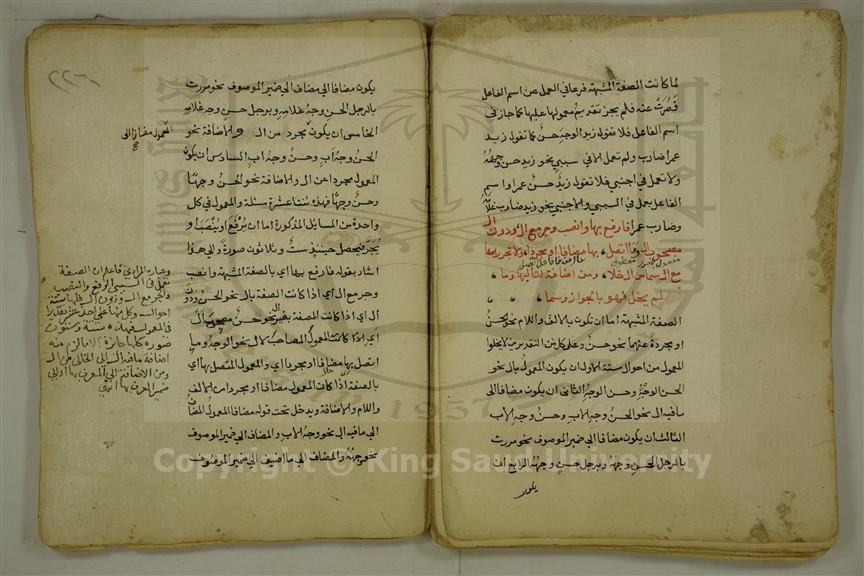 لما كانت الصفة المشبهة فرعا في العمل عن اسم الفاعل
قصرت عنه فلم يجز تقديم معمولها عليها كما جاز في
اسم الفاعل فلا تقول زيد الوجه حسن كما تقول زيد
عمرا ضارب ولم تعمل الا في سببي نحو زيد حسن وجهه
ولا تعمل في اجنبي فلا تقول زيد حسن عمرا واسم
الفاعل يعمل في السببي والاجنبي نحو زيد ضارب غلامه
وضارب عمرا فارفع بها وانصب وجر مع ال ودون ال
مصحوب ال وما اتصل بها مضافا او مجردا ولا تجرر بها
مع ال سما من ال خلا ومن اضافة لتاليها وما
لم يخل فهو بالجواز وسما
الصفة المشبهة اما ان تكون بالالف واللام نحو الحسن
او مجردة عنها نحو حسن وعلى كل من التقديرين لا يخلوا
المعمول من احوال ستة الاول ان يكون المعمول بال نحو
الحسن الوجه وحسن الوجه الثاني ان يكون مضافا الى
ما فيه ال نحو الحسن وجه الاب وحسن وجه الاب
الثالث ان يكون مضافا الى ضمير الموصوف نحو مررت
بالرجل الحسن وجهه وبرجل حسن وجهه الرابع ان
يكون
٢٢٦
يكون مضافا الى مضاف الى ضمير الموصوف نحو مررت
بالرجل الحسن وجه غلامه وبرجل حسن وجه غلامه
الخامس ان يكون مجرد من ال والاضافة نحو
المعمول مضافا الى
الحسن وجه اب وحسن وجه اب السادس ان يكون
المعمول مجردا عن ال والاضافة نحو الحسن وجها
وحسن وجها فهذه ثنتا عشرة مسئلة والمعمول في كل
واحدة من المسايل المذكورة اما ان يرفع او ينصب او
يجر فيحصل حينئذ ست وثلاثون صورة والى هذا
اشار بقوله فارفع بها اي بالصفة المشبهة وانصب
وجر مع ال اي اذا كانت الصفة بال نحو الحسن ودون
ال اي اذا كانت الصفة بغير ال نحو حسن مصحوب ال
اي اذا كانت المعمول المصاحب لال نحو الوجه وما
اتصل بها مضافا او مجردا اي والمعمول المتصل بها اي
بالصفة اذا كان المعمول مضافا او مجردا من الالف
واللام والاضافة ويدخل تحت قوله مضافا المعمول المضاف
الى ما فيه ال نحو وجه الاب والمضاف الى ضمير الموصوف
نحو وجهه والمضاف الى ما اضيف الى ضمير الموصوف
وعبارة المرادي فاعلم ان الصفة
تعمل في السببي الرفع والنصب
والجر مع ال ودون ال
احوال
في المعمول فهذه ستة وثلاثون
صورة كلها جائزة الا ما لزم منه
اضافة ما فيه ال الى الخالي من ال
ومن الاضافة الى المعرف بها او الى
ضمير المعرف بها
Copyright © King Saud University
1957